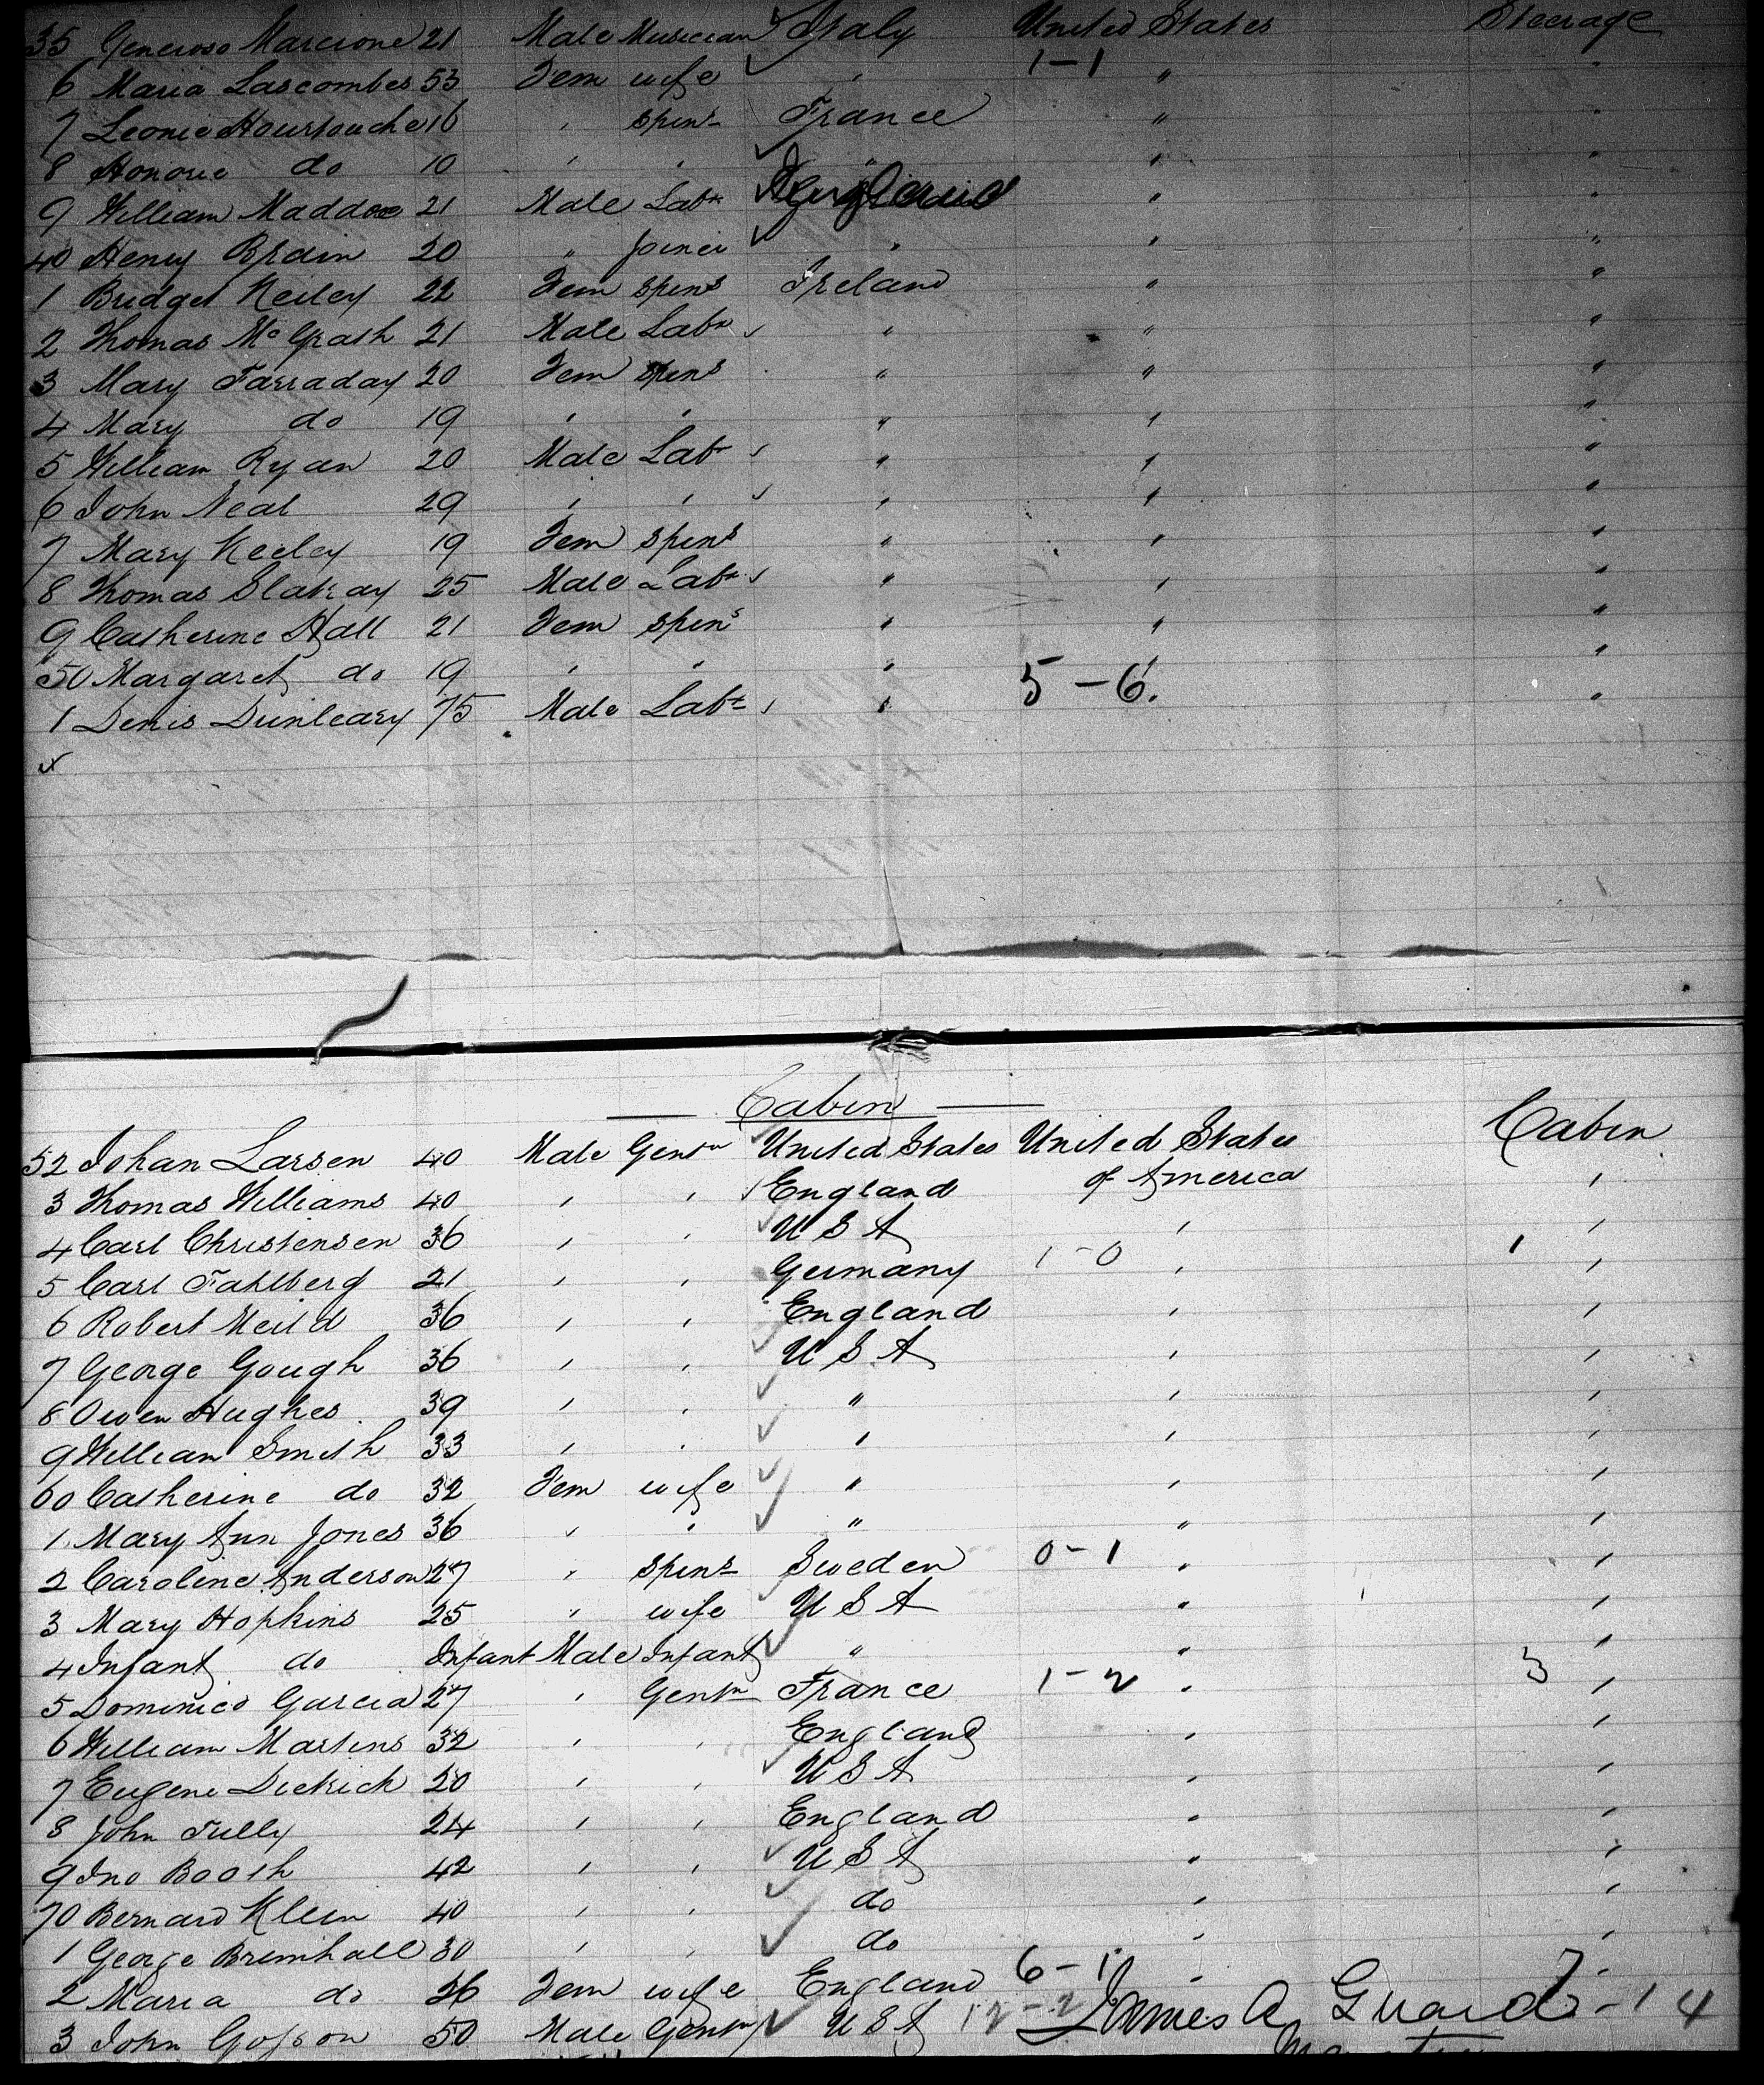 35 Generoso Marcione 21 Male Musician Italy United States Steerage
6 Maria Lascombes 53 Fem wife ' 1-1 " "
7 Leonie Hourtouche 16 ' spinr France " "
8 Honorie do 10 ' ' " " "
9 William Maddox 21 Male Labr England " "
40 Henry Brain 20 " Joiner " " "
1 Bridget Keiley 22 Fem spins Ireland " "
2 Thomas McGrath 21 Male Labr " " "
3 Mary Farraday 20 Fem spins " " "
4 Mary do 19 ' ' " " "
5 William Ryan 20 Male Labr " " "
6 John Neal 29 ' ' " " "
7 Mary Keeley 19 Fem spins " " "
8 Thomas Slattray 25 Male Labr " " "
9 Catherine Hall 21 Fem spins " " "
50 Margaret do 19 ' ' " 5-6 " "
1 Denis Dunleary 75 Male Labr " "
x
Cabin
52 Johan Larsen 40 Male Gentn United States United States Cabin
3 Thomas Williams 40 ' ' England of America '
4 Carl Christensen 36 ' ' U S A ' '
5 Carl Fahlberg 21 ' ' Germany 1-0 ' 1 '
6 Robert 36 ' ' England ' '
7 George Gough 36 ' ' U S A ' '
8 Owen Hughes 39 ' ' " ' '
9 William Smith 33 ' ' ' ' '
60 Catherine do 32 Fem wife " ' '
1 Mary Ann Jones 36 ' ' " " '
2 Caroline Anderson 27 ' spinr Sweden 0-1 ' '
3 Mary Hopkins 25 ' wife U S A ' '
4 Infant do Infant Male Infant " ' '
5 Dominico Garcia 27 ' Gentn France 1-2 ' 3 '
6 William Martins 32 ' ' England ' '
7 Eugene Dietrich 20 ' ' U S A ' '
8 John Tully 24 ' ' England ' '
9 Jno Booth 42 ' ' U S A ' '
70 Bernard Klein 40 ' ' do ' '
1 George Brimhall 30 ' ' do ' '
2 Maria do 26 Fem wife England 6-1 ' '
3 John 50 Male Gentn U S A 12-2 James A Guard -14